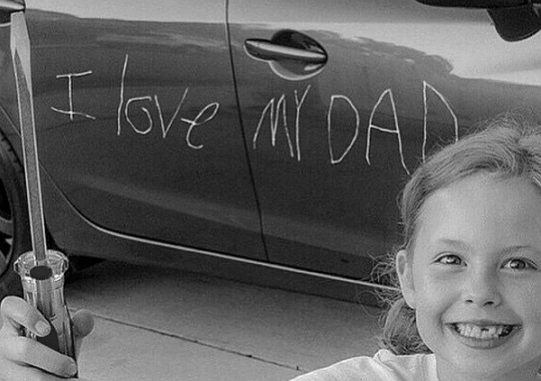 I love MY DAD